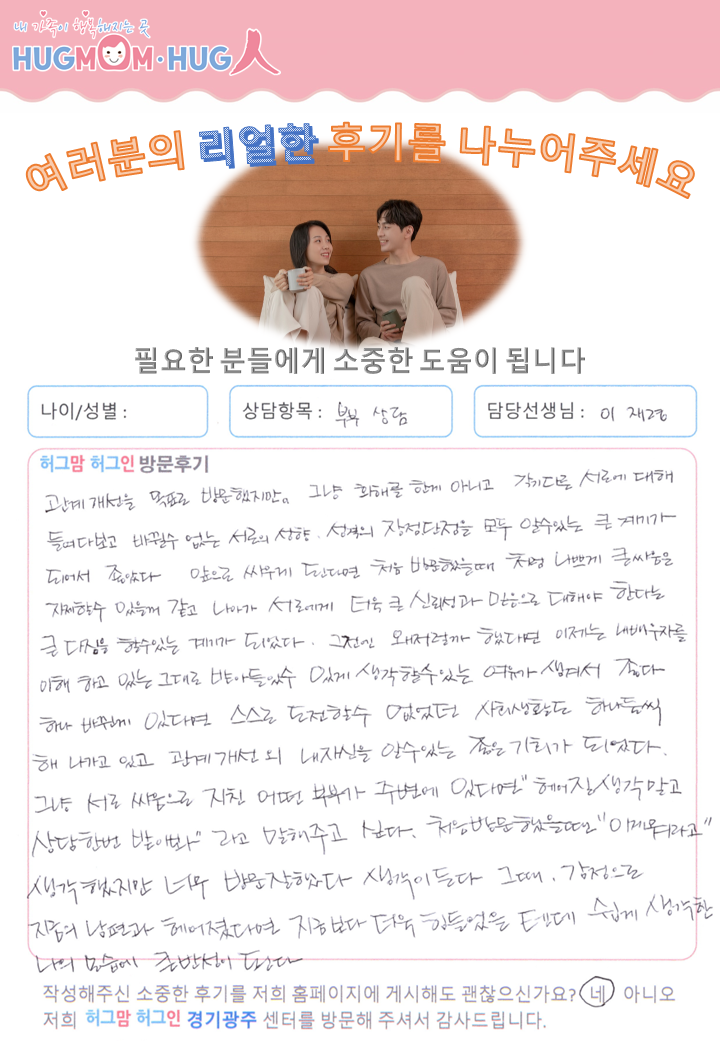 내 가족이 행복해지는 곳
HUGMOM·HUG人
여러분의 리얼한 후기를 나누어주세요
필요한 분들에게 소중한 도움이 됩니다
나이/성별 :
상담항목 : 부부 상담
담당선생님 : 이 재령
허그맘 허그인 방문후기
관계개선을 목표로 방문했지만, 그냥 화해를 한게 아니고 각기다른 서로에 대해
들여다보고 바뀔수 없는 서로의 성향. 성격의 장점단점을 모두 알수있는 큰 계기가
되어서 좋았다 앞으로 싸우게 된다면 처음 방문했을때 처럼 나쁘게 큰싸움은
자제할수 있을꺼 같고 나아가 서로에게 더욱 큰 신뢰성과 믿음으로 대해야 한다는
큰 다짐을 할수있는 계기가 되었다. 그전엔 왜저럴까 했다면 이제는 내배우자를
이해 하고 있는 그대로 받아들일수 있게 생각할수있는 여유가 생겨서 좋다
하나 바뀐게 있다면 스스로 도전할수 없었던 사회생활도 하나둘씩
해 나가고 있고 관계개선 외 내자신을 알수있는 좋은기회가 되었다.
그냥 서로 싸움으로 지친 어떤 부부가 주변에 있다면 "헤어질생각말고
상담한번 받아봐" 라고 말해주고 싶다. 처음방문했을때는 "이게뭐라고"
생각했지만 너무 방문잘했다 생각이든다 그때, 감정으로
지금의 남편과 헤어졌다면 지금보다 더욱 힘들었을 텐데 쉽게 생각한
나의 모습에 큰반성이 든다
작성해주신 소중한 후기를 저희 홈페이지에 게시해도 괜찮으신가요? 네 아니오
저희 허그맘 허그인 경기광주 센터를 방문해 주셔서 감사드립니다.